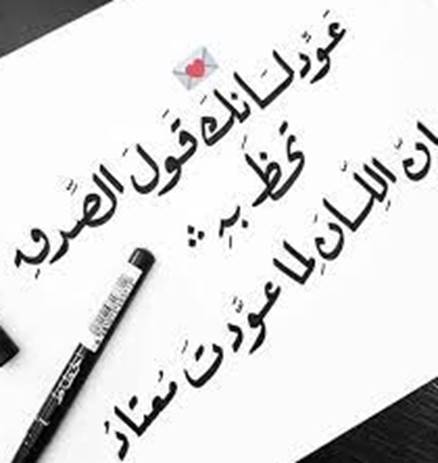 عَوِّد لسانكَ قَولَ الصِّدقِ
تحظَ بهِ
انّ اللِسَانَ لما عوَّدتَ مُعتادُ